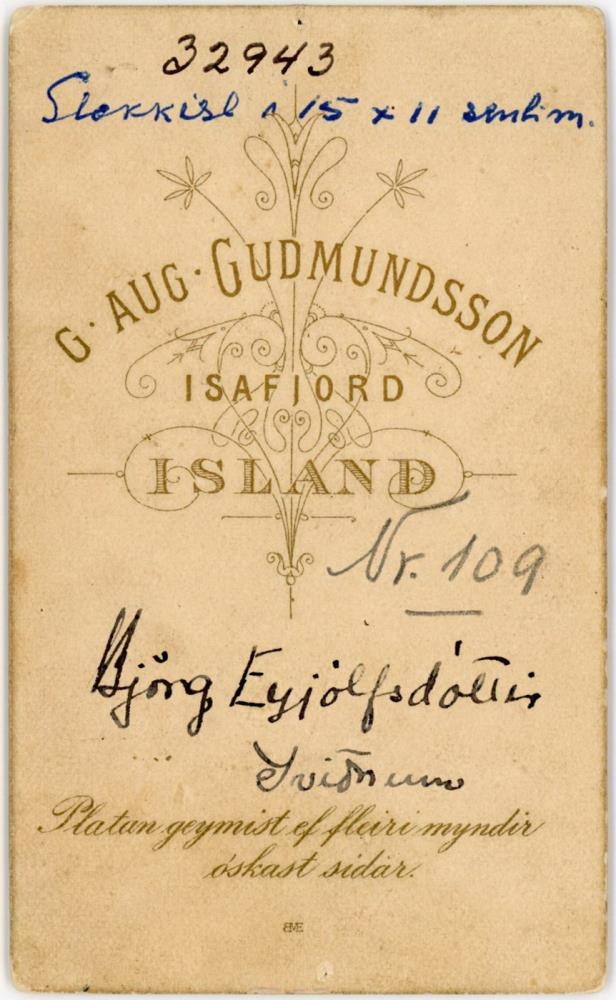 32943
Stækkist í 15 x 11 sentim.
G. AUG. GUDMUNDSSON
ISAFJORD
ISLAND
Nr. 109
Björg Eyjólfsdóttir
Sviðnum
Platan geymist ef fleiri myndir
óskast sidar.